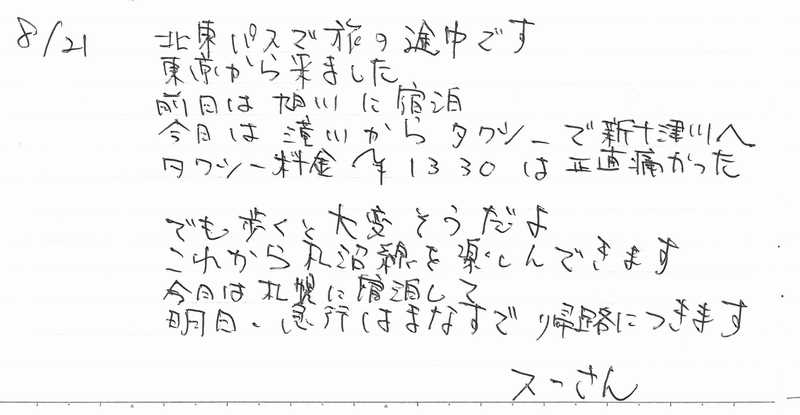 8/21 北東パスで旅の途中です
東京から来ました
前日は旭川に宿泊
今日は滝川からタクシーで新十津川へ
タクシー料金 ¥1330は正直痛かった
でも歩くと大変そうだよ
これから札沼線を楽しんできます
今日は札幌に宿泊して
明日、急行はまなすで帰路につきます
スーさん